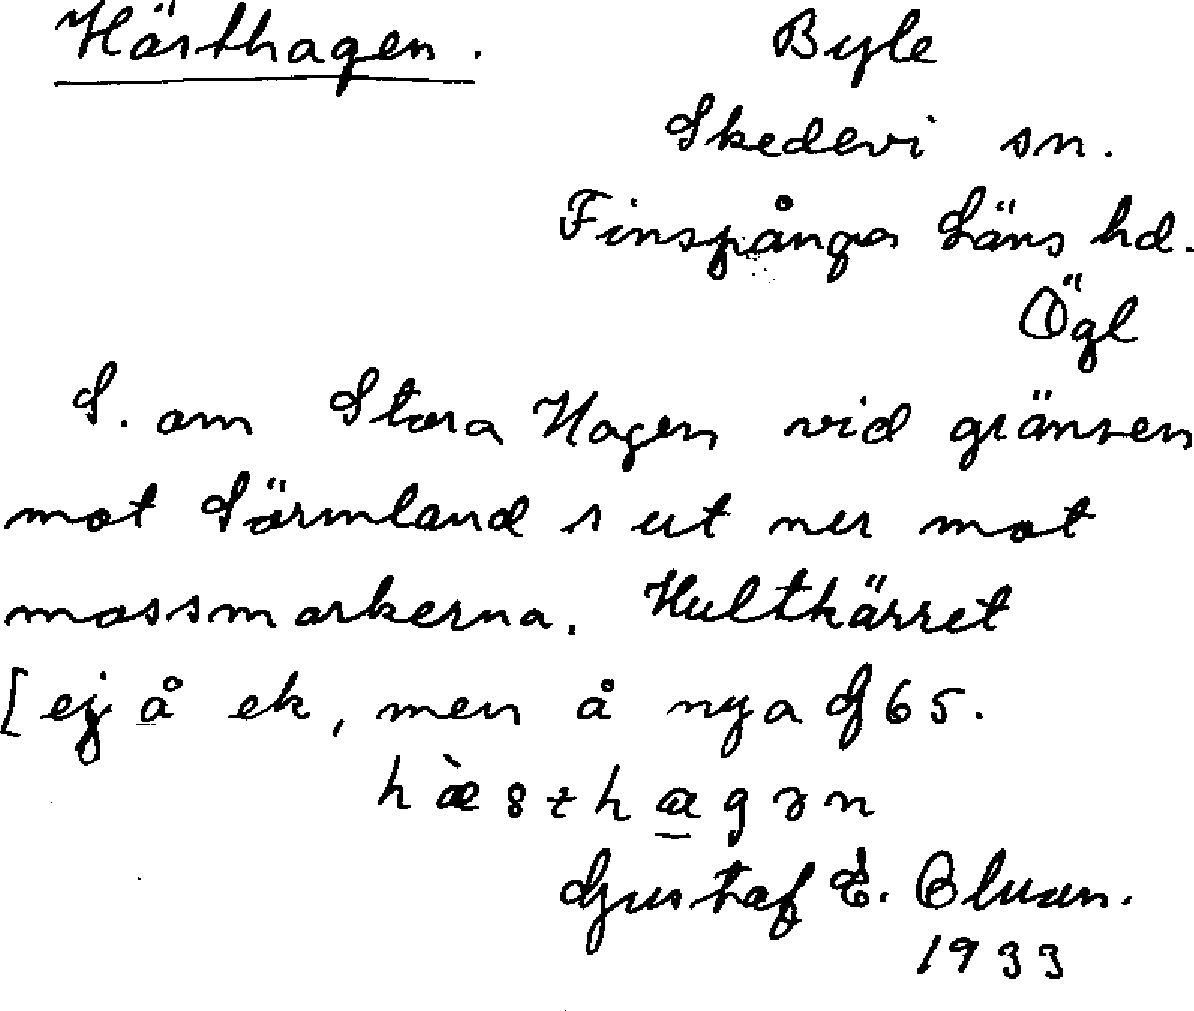 Hästhagen. Byle
Skedevi sn.
Finspånga Läns hd.
Ögl
S. om Stora Hagen vid gränsen
mot Sörmland s ut ner mot
mossmarkerna. Hultkärret
[ej å ek, men å nya G65.
hæ̀sthagən
Gustaf E.
1933